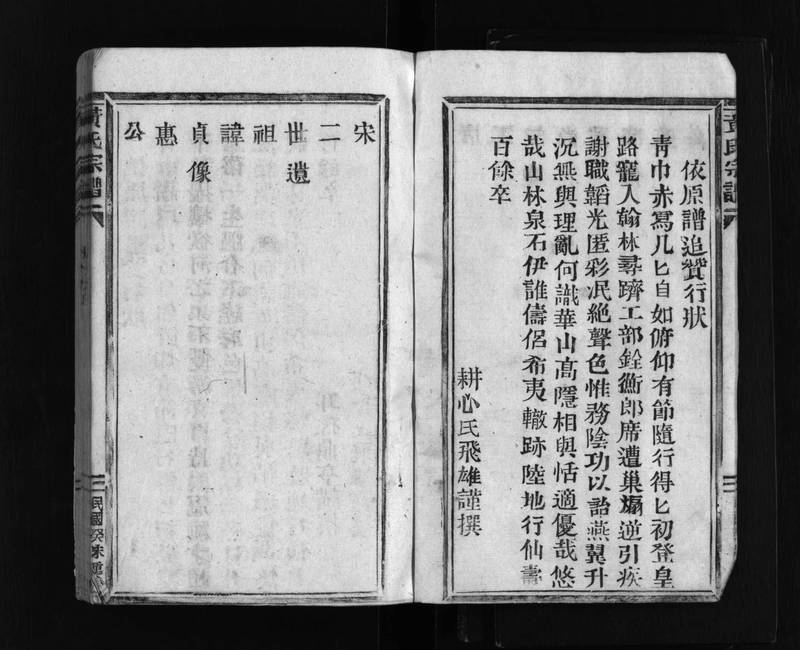 黃氏宗譜
依原譜追贊行狀
靑巾赤舃几匕自如俯仰有節隨行得匕初登皇
路寵入翰林尋躋工部銓衡郎席遭巢煽逆引疾
謝職韜光匿彩泯絶聲色惟務陰功以詒燕翼升
沉無與理亂何識華山高隱相與恬適優哉悠
哉山林泉石伊誰儔侶希夷轍跡陸地行仙壽
百餘卒
耕心氏飛雄謹撰
宋
二
世遺
祖
諱
貞像
惠
公
黃氏宗譜
民國癸未重